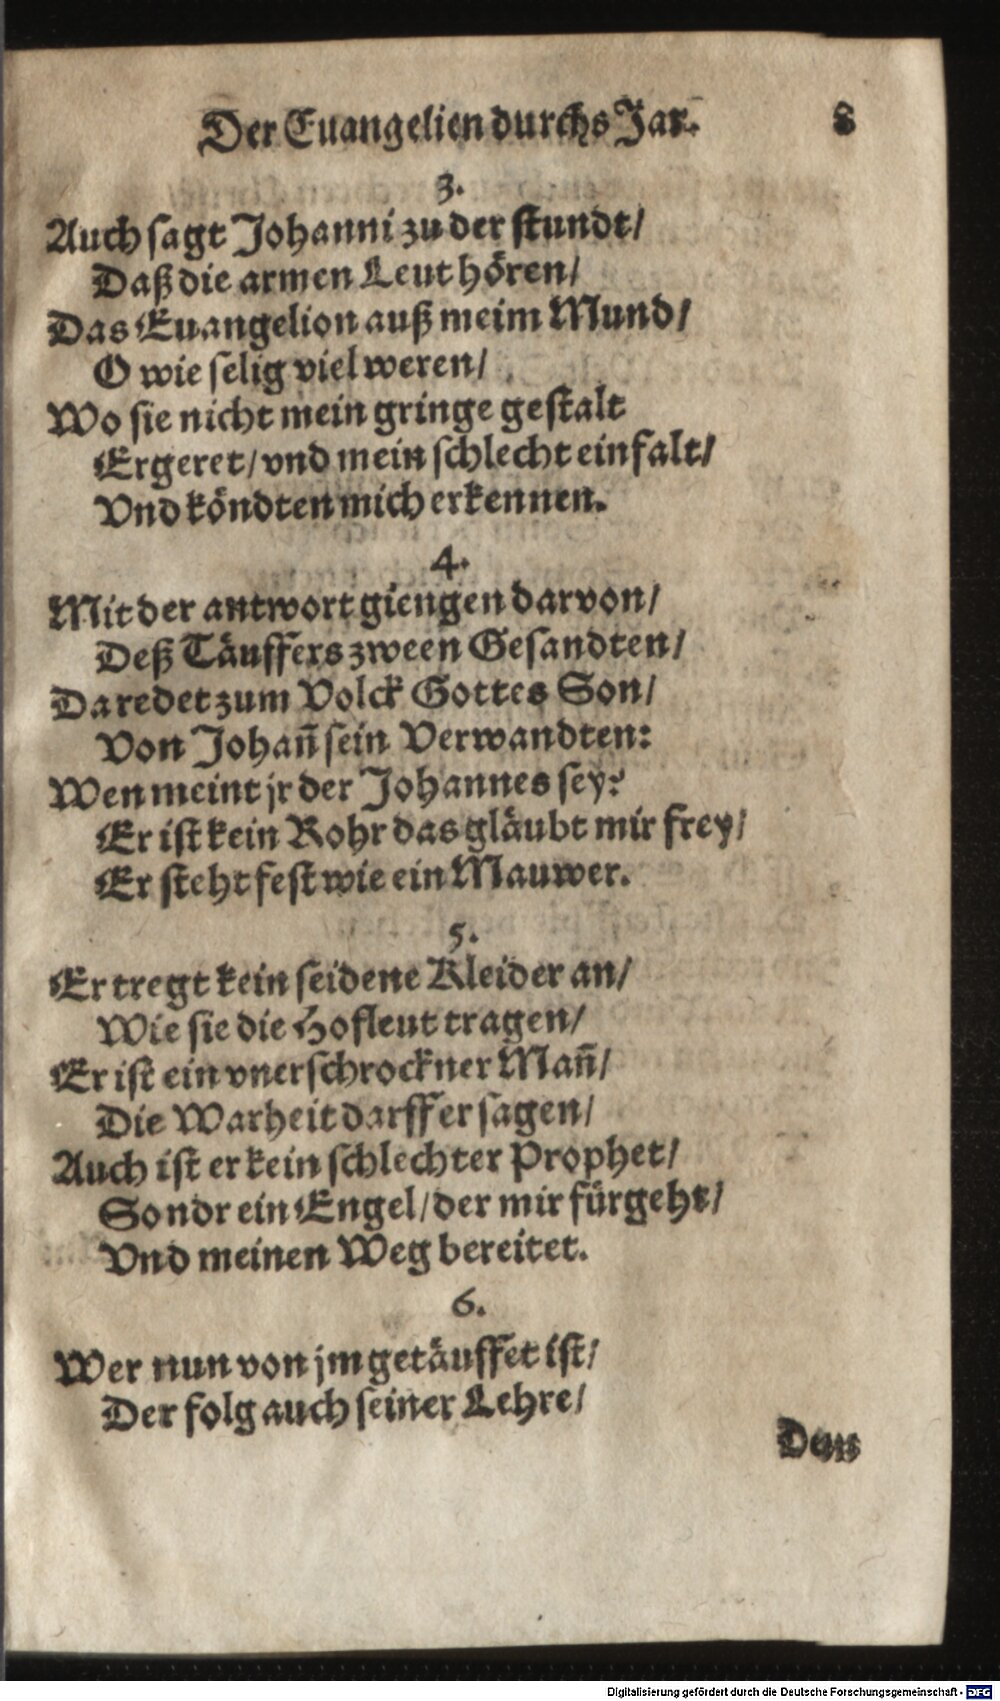 Der Euangelien durchs Jar. 8
3.
Auch sagt Johanni zu der stundt/
Daß die armen Leut hören/
Das Euangelion auß meim Mund/
O wie selig viel weren/
Wo sie nicht mein gringe gestalt
Ergeret/ vnd mein schlecht einfalt/
Vnd köndten mich erkennen.
4.
Mit der antwort giengen darvon/
Deß Täuffers zween Gesandten/
Da redet zum Volck Gottes Son/
Von Johañ sein Verwandten:
Wen meint jr der Johannes sey?
Er ist kein Rohr das gläubt mir frey/
Er steht fest wie ein Mauwer.
5.
Er tregt kein seidene Kleider an/
Wie sie die Hofleut tragen/
Er ist ein vnerschrockner Mañ/
Die Warheit darff er sagen/
Auch ist er kein schlechter Prophet/
Sondr ein Engel/ der mir fürgeht/
Vnd meinen Weg bereitet.
6.
Wer nun von jm getäuffet ist/
Der folg auch seiner Lehre/
Denn
Digitalisierung gefördert durch die Deutsche Forschungsgemeinschaft - DFG